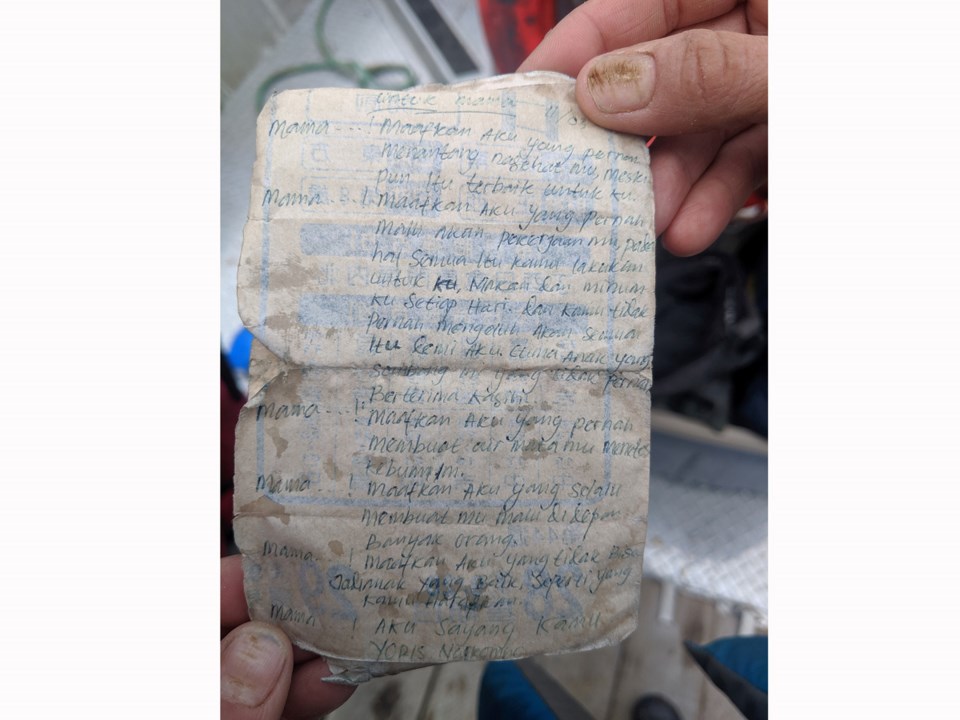 untuk mama
Mama ...! Maafkan Aku yang pernah
Menantang nasehat mu, Meski
pun Itu terbaik untuk ku.
Mama ...! Maafkan Aku yang Pernah
Malu Akan pekerjaan mu, pada
hal Semua Itu kamu lakukan
untuk ku, Makan dan minum
ku Setiap Hari. dan kamu tidak
Pernah mengeluh Akan Semua
Itu demi Aku. Cuma Anak yang
sombong ini yang tidak pernah
Berterima Kasih.
Mama ...! Maafkan Aku yang pernah
Membuat air mata mu Menetes
Mama ...! Maafkan Aku yang Selalu
Membuat mu Malu di depan
Banyak orang.
Mama ...! Maafkan Aku yang tidak Bisa
Jadi anak yang Baik, Seperti yang
Kamu Harapkan.
Mama ...! Aku Sayang Kamu
YOPIS